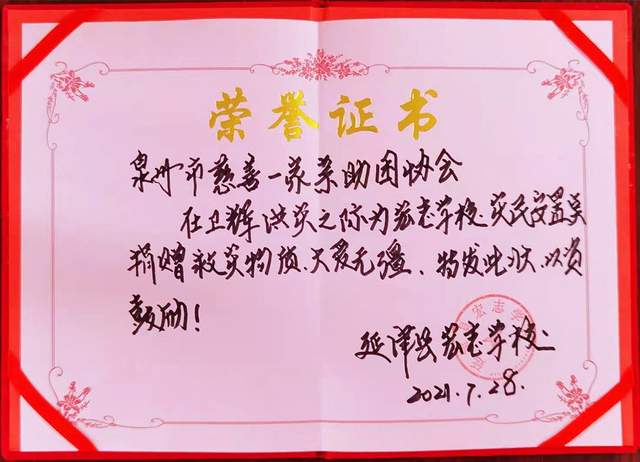 荣誉证书
泉州市慈善一家亲助困协会
在卫辉洪灾之际为宏志学校灾民安置点
捐赠救灾物质.大爱无疆、特发此状.以资
鼓励!
延津县宏志学校
2021.7.28.